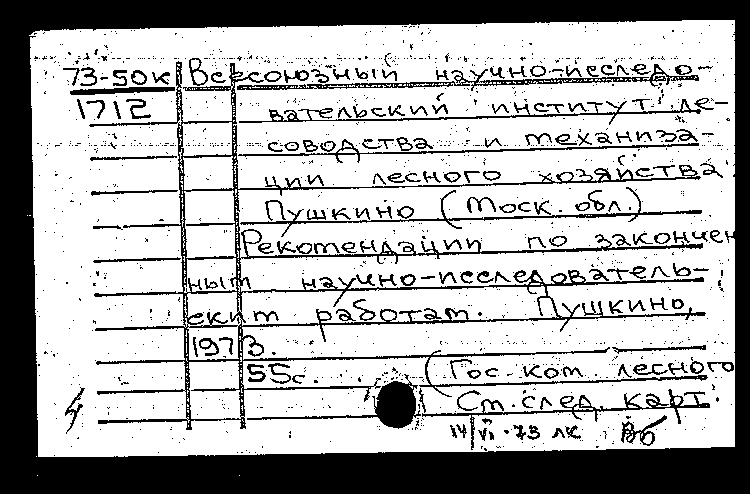 73-50к Всесоюзный научно-исследо-
1712 вательский институт ле-
соводства и механиза-
ции лесного хозяйства
Пушкино (Моск. обл.)
Рекомендации по закончен
ным научно-исследователь-
ским работам. Пушкино,
1973.
55с. (Гос. ком. лесного
См. след. карт.
14/VI-73 лк Вб